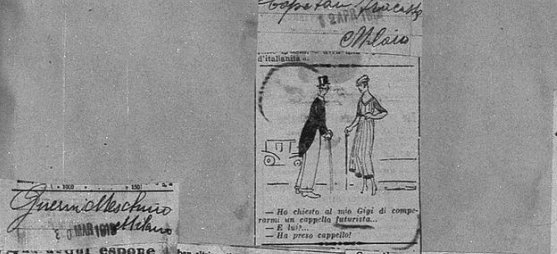 2 APR 191
Milano
d'italianità
— Ho chiesto al mio Gigi di compe-
rarmi un cappello futurista...
— E lui?...
— Ha preso cappello!
1000 150
Guerin Meschino
Milano
MAR 191